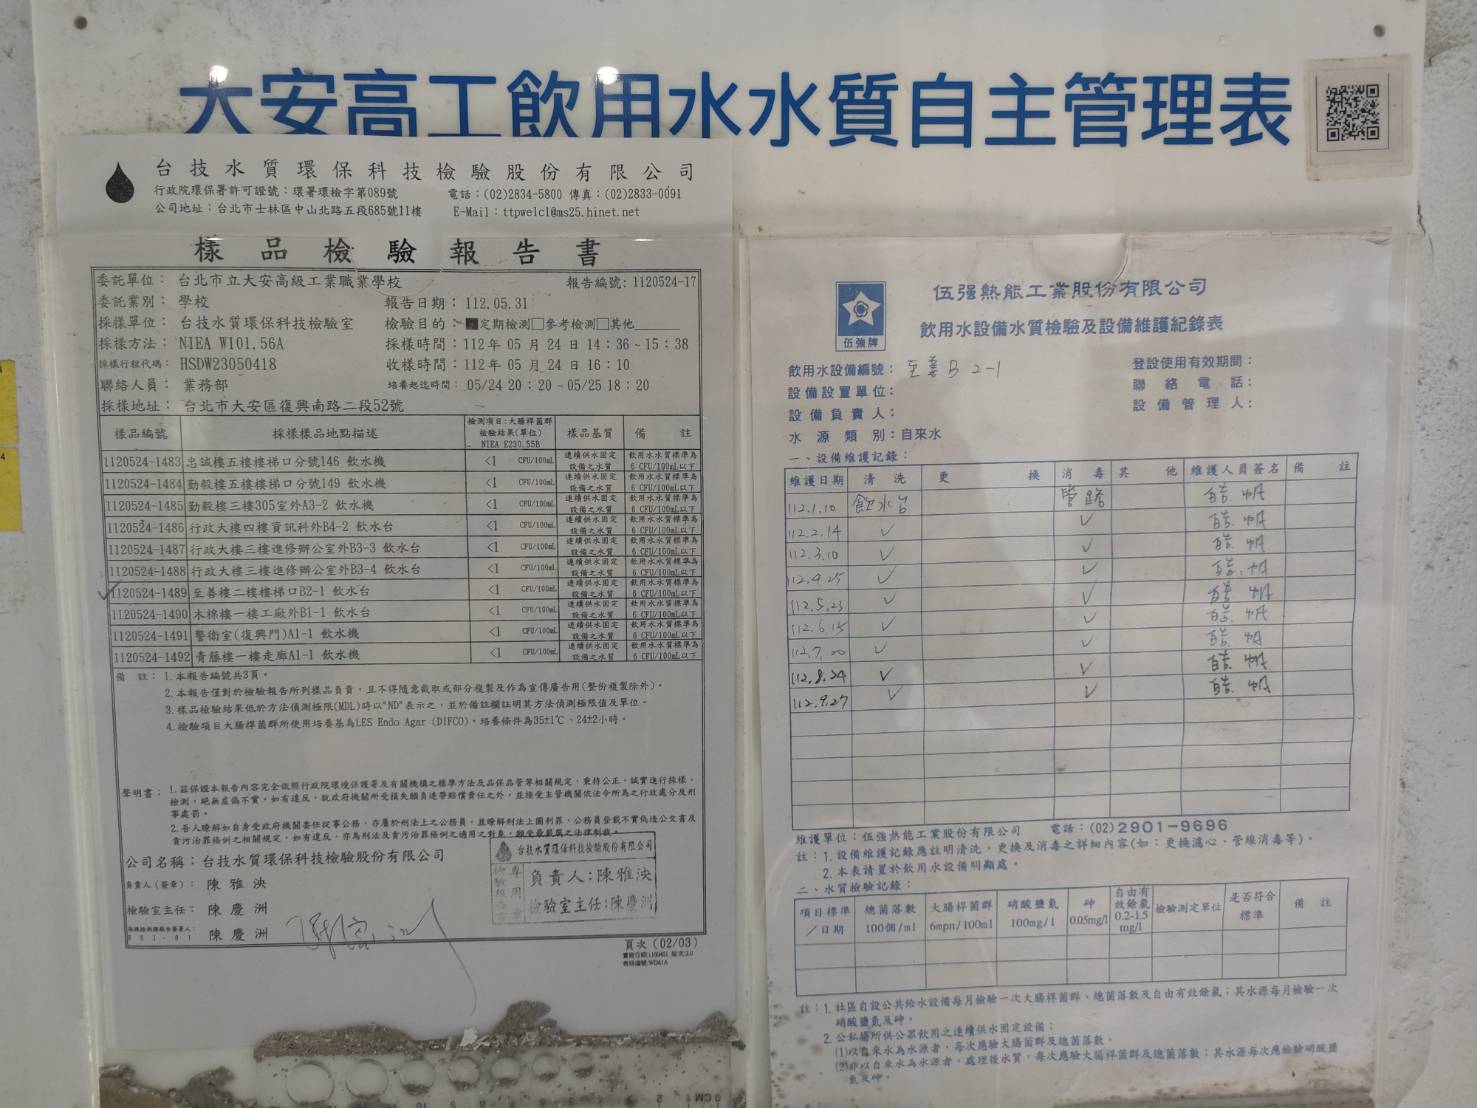 大安高工飲用水水質自主管理表
台技水質環保科技檢驗股份有限公司
行政院環保署許可證號：環署環檢字第089號
電話：(02)2834-5800 傳真：(02)2833-0091
公司地址：台北市士林區中山北路五段685號11樓
E-Mail：ttpwelcl@ms25.hinet.net
樣品檢驗報告書
委託單位： 台北市立大安高級工業職業學校
報告編號: 1120524-17
委託業別： 學校
報告日期：112.05.31
採樣單位： 台技水質環保科技檢驗室
檢驗目的：■定期檢測□參考檢測□其他
採樣方法： NIEA W101.56A
採樣時間：112年 05月 24日 14：36~15：38
採樣行程代碼： HSDW23050418
收樣時間：112年 05月 24日 16：10
聯絡人員： 業務部
培養起迄時間：05/24 20：20~05/25 18：20
採樣地址： 台北市大安區復興南路二段52號
樣品編號 採樣樣品地點描述 檢測項目:大腸桿菌群 檢驗結果(單位) NIEA E230.55B 樣品基質 備 註
1120524-1483 忠誠樓五樓樓梯口分號146 飲水機 <1 CFU/100mL 連續供水固定設備之水質 飲用水水質標準為6 CFU/100mL以下
1120524-1484 勤毅樓五樓樓梯口分號149 飲水機 <1 CFU/100mL 連續供水固定設備之水質 飲用水水質標準為6 CFU/100mL以下
1120524-1485 勤毅樓三樓305室外A3-2 飲水機 <1 CFU/100mL 連續供水固定設備之水質 飲用水水質標準為6 CFU/100mL以下
1120524-1486 行政大樓四樓資訊科外B4-2 飲水台 <1 CFU/100mL 連續供水固定設備之水質 飲用水水質標準為6 CFU/100mL以下
1120524-1487 行政大樓三樓進修辦公室外B3-3 飲水台 <1 CFU/100mL 連續供水固定設備之水質 飲用水水質標準為6 CFU/100mL以下
1120524-1488 行政大樓三樓進修辦公室外B3-4 飲水台 <1 CFU/100mL 連續供水固定設備之水質 飲用水水質標準為6 CFU/100mL以下
1120524-1489 至善樓二樓樓梯口B2-1 飲水台 <1 CFU/100mL 連續供水固定設備之水質 飲用水水質標準為6 CFU/100mL以下
1120524-1490 木棉樓一樓工廠外B1-1 飲水台 <1 CFU/100mL 連續供水固定設備之水質 飲用水水質標準為6 CFU/100mL以下
1120524-1491 警衛室(復興門)A1-1 飲水機 <1 CFU/100mL 連續供水固定設備之水質 飲用水水質標準為6 CFU/100mL以下
1120524-1492 青藤樓一樓走廊A1-1 飲水機 <1 CFU/100mL 連續供水固定設備之水質 飲用水水質標準為6 CFU/100mL以下
備 註：1.本報告編號共3頁。
2.本報告僅對於檢驗報告所列樣品負責，且不得隨意截取或部分複製及作為宣傳廣告用(整份複製除外)。
3.樣品檢驗結果低於方法偵測極限(MDL)時以"ND"表示之，並於備註欄註明其方法偵測極限值及單位。
4.檢驗項目大腸桿菌群所使用培養基為LES Endo Agar (DIFCO)，培養條件為35±1℃、24±2小時。
聲明書：1.茲保證本報告內容完全依照行政院環境保護署及有關機構之標準方法及品保品管等相關規定，秉持公正、誠實進行採樣、
檢測，絕無虛偽不實，如有違反，就政府機關所受損失願負連帶賠償責任之外，並接受主管機關依法令所為之行政處分及刑
事處罰。
2.吾人瞭解如自身受政府機關委任從事公務，亦屬於刑法上之公務員，並瞭解刑法上圖利罪、公務員登載不實偽造公文書及
貪污治罪條例之相關規定，如有違反，亦為刑法及貪污治罪條例之適用之對象，願受最嚴厲之法律制裁。
公司名稱：台技水質環保科技檢驗股份有限公司
負責人（簽章）： 陳雅泱
檢驗室主任： 陳慶洲
陳慶洲
台技水質環保科技檢驗股份有限公司
負責人:陳雅泱
檢驗室主任:陳慶洲
頁次 (02/03)
伍強牌
伍强熱能工業股份有限公司
飲用水設備水質檢驗及設備維護紀錄表
飲用水設備編號： 至善B 2-1
登設使用有效期間：
設備設置單位：
聯 絡 電 話：
設備負責人：
設備管理人：
水源類別：自來水
一、設備維護記錄：
維護日期 清洗 更換 消毒 其他 維護人員簽名 備註
112.1.10 飲水台 管路
112.2.14 ✓ ✓
112.3.10 ✓ ✓
112.4.25 ✓ ✓
112.5.23 ✓ ✓
112.6.15 ✓ ✓
112.7.20 ✓ ✓
112.8.24 ✓ ✓
112.9.27 ✓ ✓
維護單位：伍強熱能工業股份有限公司 電話：(02)2901-9696
註：1.設備維護記錄應註明清洗、更換及消毒之詳細內容(如：更換濾心、管線消毒等)。
2.本表請置於飲用水設備明顯處。
二、水質檢驗記錄：
項目標準／日期 總菌落數 100個/ml 大腸桿菌群 6mpn/100ml 硝酸鹽氮 100mg/l 砷 0.05mg/l 自由有效餘氯 0.2-1.5 mg/l 檢驗測定單位 是否符合標準 備註
註：1.社區自設公共給水設備每月檢驗一次大腸桿菌群、總菌落數及自由有效餘氯；其水源每月檢驗一次
硝酸鹽氮及砷。
2.公私場所供公眾飲用之連續供水固定設備：
(1)以自來水為水源者，每次應驗大腸菌群及總菌落數。
(2)非以自來水為水源者，處理後水質，每次應驗大腸桿菌群及總菌落數；其水源每次應檢驗硝酸鹽
氮及砷。